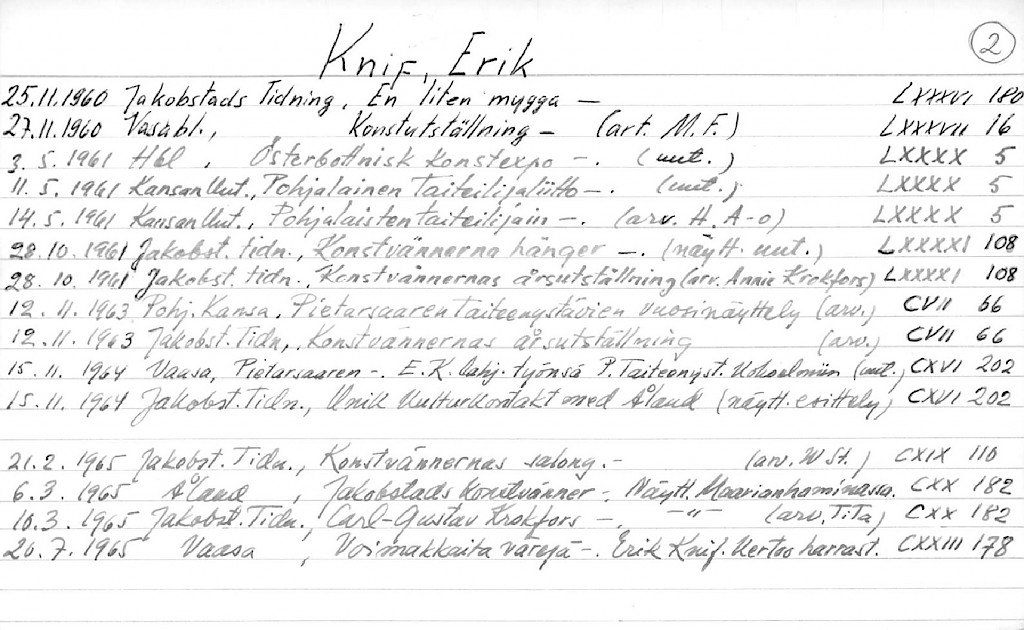 2
Knif, Erik
25.11.1960 Jakobstads Tidning, En liten mygga — LXXXVI 180
27.11.1960 Vasabl., Konstutställning — (art. M.F.) LXXXVII 16
3.5.1961 Hbl, Österbottnisk Konstexpo —. (uut.) LXXXX 5
11.5.1961 Kansan Uut., Pohjalainen Taiteilijaliitto —. (uut.) LXXXX 5
14.5.1961 Kansan Uut., Pohjalaisten taiteilijain —. (arv. H. A-o) LXXXX 5
28.10.1961 Jakobst. tidn., Konstvännerna hänger —. (näytt. uut.) LXXXXI 108
28.10.1961 Jakobst. tidn., Konstvännernas årsutställning (arv. Annie Krokfors) LXXXXI 108
12.11.1963 Pohj. Kansa, Pietarsaaren Taiteenystävien vuosinäyttely (arv.) CVII 66
12.11.1963 Jakobst. Tidn, Konstvännernas årsutställning (arv.) CVII 66
15.11.1964 Vaasa, Pietarsaaren —. E.K. lahj. työnsä P. Taiteenyst. kokoelmiin (uut.) CXVI 202
15.11.1964 Jakobst. Tidn., Unik kulturkontakt med Åland (näytt. esittely) CXVI 202
21.2.1965 Jakobst. Tidn., Konstvännernas salong. — (arv. W St.) CXIX 110
6.3.1965 Åland, Jakobstads Konstvänner —, Näytt. Maarianhaminassa. CXX 182
10.3.1965 Jakobst. Tidn., Carl-Gustav Krokfors —. —"— (arv. TiTa) CXX 182
20.7.1965 Vaasa, Voimakkaita värejä —. Erik Knif. Kertoo harrast. CXXIII 178